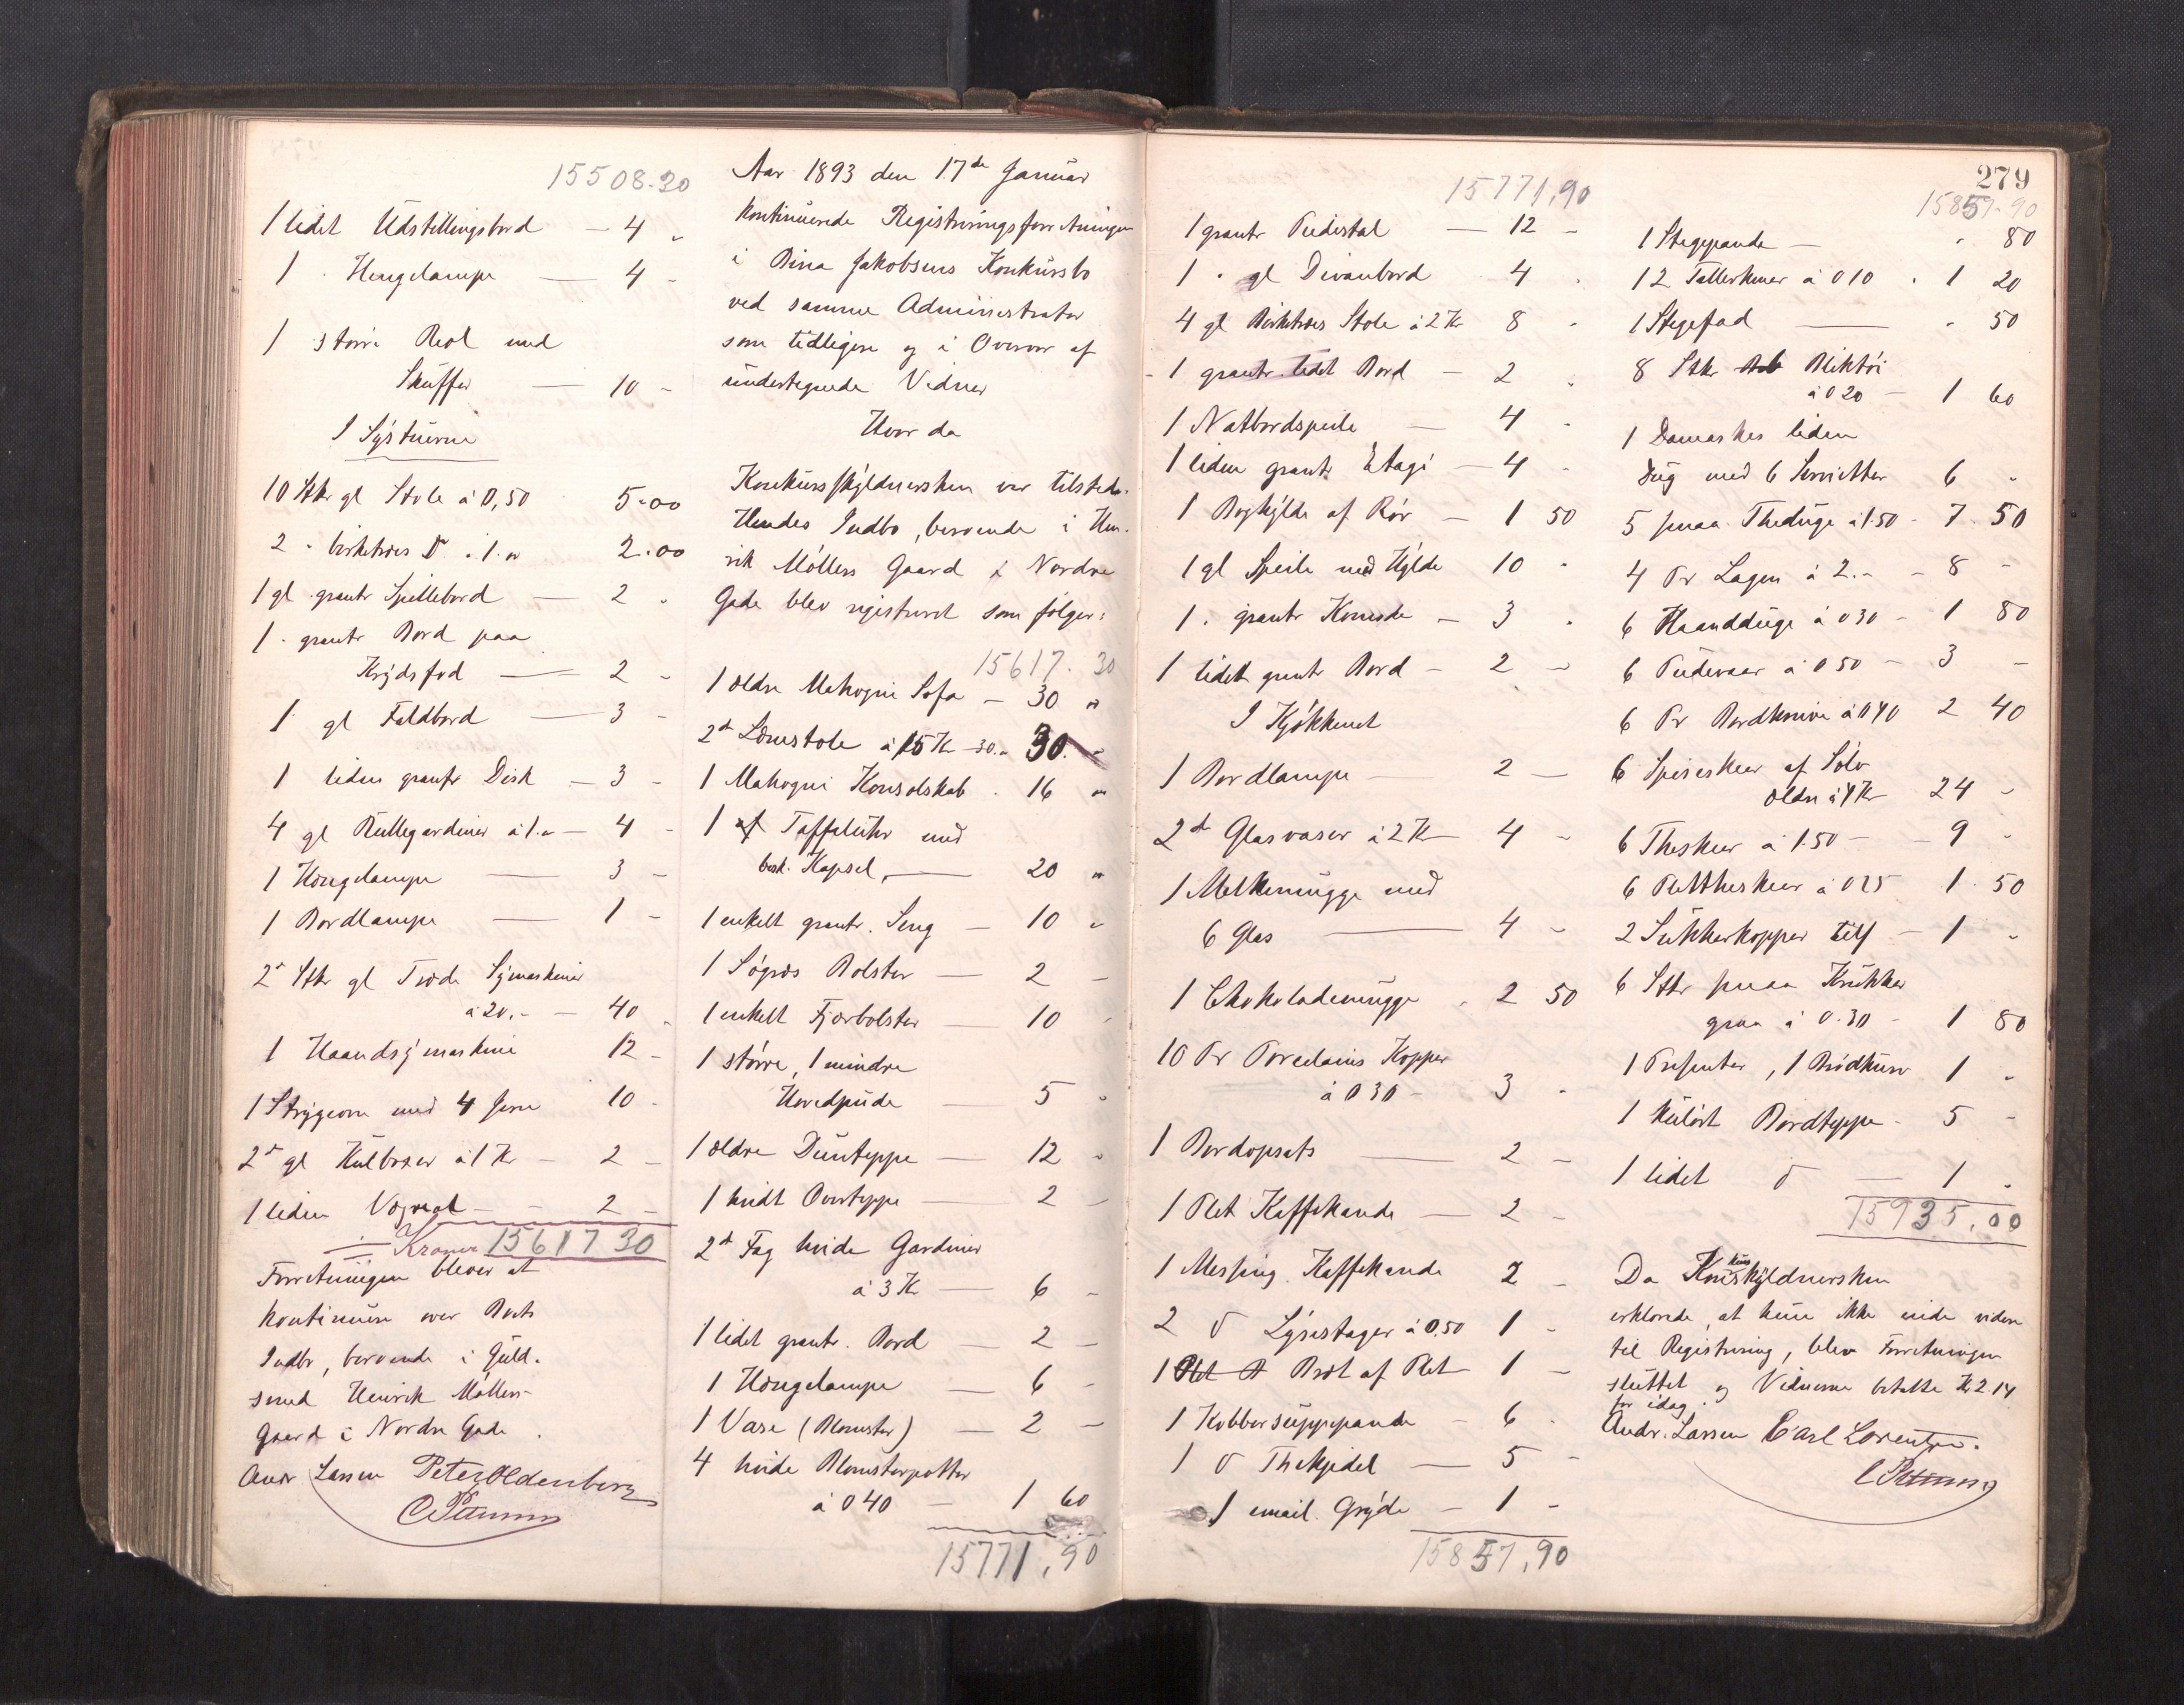 15508.30
1 lidet Udstillingsbord — 4 "
1 " Hengelampe — 4 -
1 større Reol med
Skuffer — 10 -
I Systuerne
10 Stkr gl Stole à 0,50 5.00
2 " birketræs D° à 1.00 2.00
1 gl grantr Spillebord — 2 "
1 " grantr Bord paa
Krydsfod — 2 -
1 gl Faldbord — 3 -
1 liden grantr Disk — 3 -
4 gl Rullegardiner à 1.- — 4 -
1 Hængelampe — 3 -
1 Bordlampe — 1 -
2 Stkr gl Træde Symaskiner
à 20.- — 40 "
1 Haandsymaskine 12 -
1 Strygeovn med 4 Jern 10 -
2 gl Kulboxer à 1 Kr — 2 -
1 liden Vognal — 2 -
Kroner 15617 30
Forretningen blever at
kontinuere over Boets
Indbo, beroende i Guld-
smed Henrik Møllers
Gaard i Nordre Gade.
Andr Larsen Peter Oldenborg
Aar 1893 den 17de Januar
kontinuerede Registreringsforretningen
i Dina Jakobsens Konkursbo
ved samme Administrator
som tidligere og i Overvær af
undertegnede Vidner
Hvor da
Konkursskyldnersken var tilstede.
Hendes Indbo, beroende i Hen-
rik Møllers Gaard i Nordre
Gade blev registreret som følger:
15617.30
1 ældre Mahogni Sofa — 30 "
2 Lænestole à 15 Kr 30.- 30. -
1 Mahogni Konsolskab . 16 "
1 Taffeluhr med
besk. Kapsel, — 20 "
1 enkelt grantr. Seng — 10 "
1 Søgræs Bolster — 2 -
1 enkelt Fjærbolster — 10 -
1 større, 1 mindre
Hovedpude — 5 "
1 ældre Dunteppe — 12 "
1 hvidt Overteppe — 2 -
2 Fag hvide Gardiner
à 3 Kr — 6 -
1 lidet grantr. Bord — 2 -
1 Hængelampe — 6 -
1 Vase (Blomster) — 2 -
4 hvide Blomsterpotter
à 0 40 — 1 60
15771,90
15771,90
1 grantr Piedestal — 12 -
1 " gl Divanbord 4 "
4 gl Birketræs Stole à 2 Kr 8 "
1 grantr lidet Bord — 2 "
1 Natbordspeile — 4 -
1 liden grantr Etagé — 4 -
1 Boghylde af Rør — 1 50
1 gl Speile med Hylde 10 "
1 " grantr Komode — 3 "
1 lidet grantr Bord — 2 -
I Kjøkkenet
1 Bordlampe — 2 —
2 Glasvaser à 2 Kr — 4 -
1 Melkemugge med
6 Glas — 4 -
1 Chokolademugge . 2 50
10 Pr Porcelains Kopper
à 0 30 — 3 "
1 Bordopsats — 2 -
1 Plet Kaffekande — 2 -
1 Messing Kaffekande 2 -
2 D° Lysestager à 0.50 1 -
1 Bræt af Plet 1 -
1 Kobbersuppepande — 6 -
1 D° Thekjedel — 5 -
1 email. Gryde — 1 -
15857,90
279
15857.90
1 Stegepande — " 80
12 Tallerkener à 0 10 . 1 20
1 Stegefad — " 50
8 Stkr Bliktøi
à 0 20 — 1 60
1 Damaskes liden
Dug med 6 Servietter 6 "
5 smaa Theduge à 1.50 7 50
4 Pr Lagen à 2.- — 8 -
6 Haandduge à 0 30 — 1 80
6 Pudevaar à 0 50 — 3 -
6 Pr Bordknive à 0 40 2 40
6 Spiseskeer af Sølv
ældre à 4 Kr 24 -
6 Theskeer à 1.50 — 9 -
6 Pletteskeer à 0 25 1.50
2 Sukkerkopper — 1 -
6 Stkr smaa Krukker
graa à 0.30 — 1 80
1 Presenter, 1 Brødkurv 1 "
1 kulørt Bordteppe . 5 -
1 lidet D° — 1 -
15935,00
Da Konkurskyldnersken
erklærede, at hun ikke vidste videre
til Registrering, blev Forretningen
sluttet og Vidnerne betalte Kr 2.14
for idag.
Andr. Larsen Carl Lorentzen.